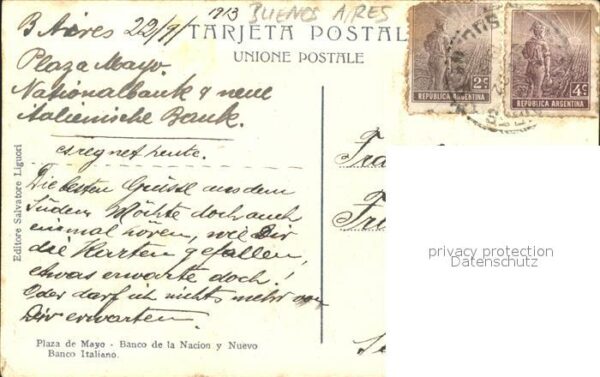 1913 BUENOS AIRES
B Aires 22/9/
TARJETA POSTAL
UNIONE POSTALE
Plaza Mayo.
Nationalbank & neue
italienische Bank.
es regnet heute.
Die besten Grüsse aus dem
Süden. Möchte doch auch
einmal hören, wie Dir
die Karten gefallen,
etwas erwarte doch!
Oder darf ich nichts mehr von
Dir erwarten.
Plaza de Mayo - Banco de la Nacion y Nuevo
Banco Italiano.
Editore Salvatore Liguori
2c
REPUBLICA ARGENTINA
4c
REPUBLICA ARGENTINA
privacy protection
Datenschutz